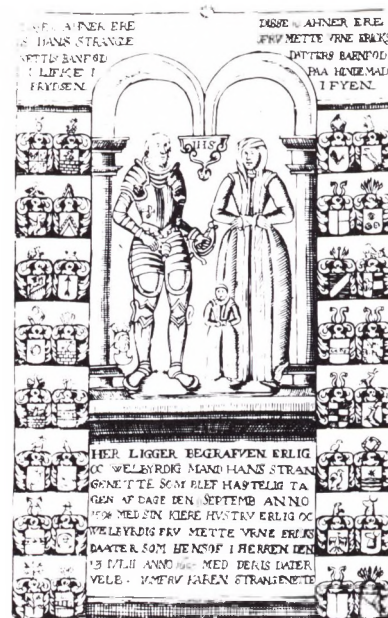 AHNER ERE
HANS STRANGE
I LIFKE I
FRYDSEN.
DISSE AHNER ERE
FRV METTE VRNE ERICKS
DATTERS BARNFØD
PAA HINDEMAD
I FYEN.
IHS
HER LIGGER BEGRAFVEN ERLIG
OC WELBYRDIG MAND HANS STRAN
GENETTE SOM BLEF HASTELIG TA
GEN AF DAGE DEN SEPTEMB ANNO
MED SIN KIERE HVSTRV ERLIG OC
WELBYRDIG FRV METTE VRNE ERIKS
DAATER SOM HENSOF I HERREN DEN
13 IVLII ANNO MED DERIS DATER
VELB. IOMFRV KAREN STRANGENETTE